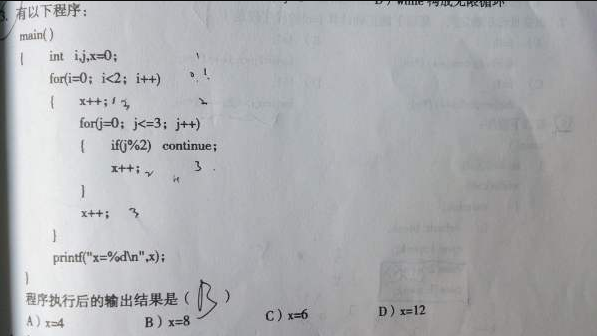 D) while 构成无限循环
3. 有以下程序:
main()
{ int i,j,x=0;
for(i=0; i<2; i++)
{ x++;
for(j=0; j<=3; j++)
{ if(j%2) continue;
x++;
}
x++; 3
}
printf("x=%d\n",x);
}
程序执行后的输出结果是( B )
A) x=4 B) x=8 C) x=6 D) x=12